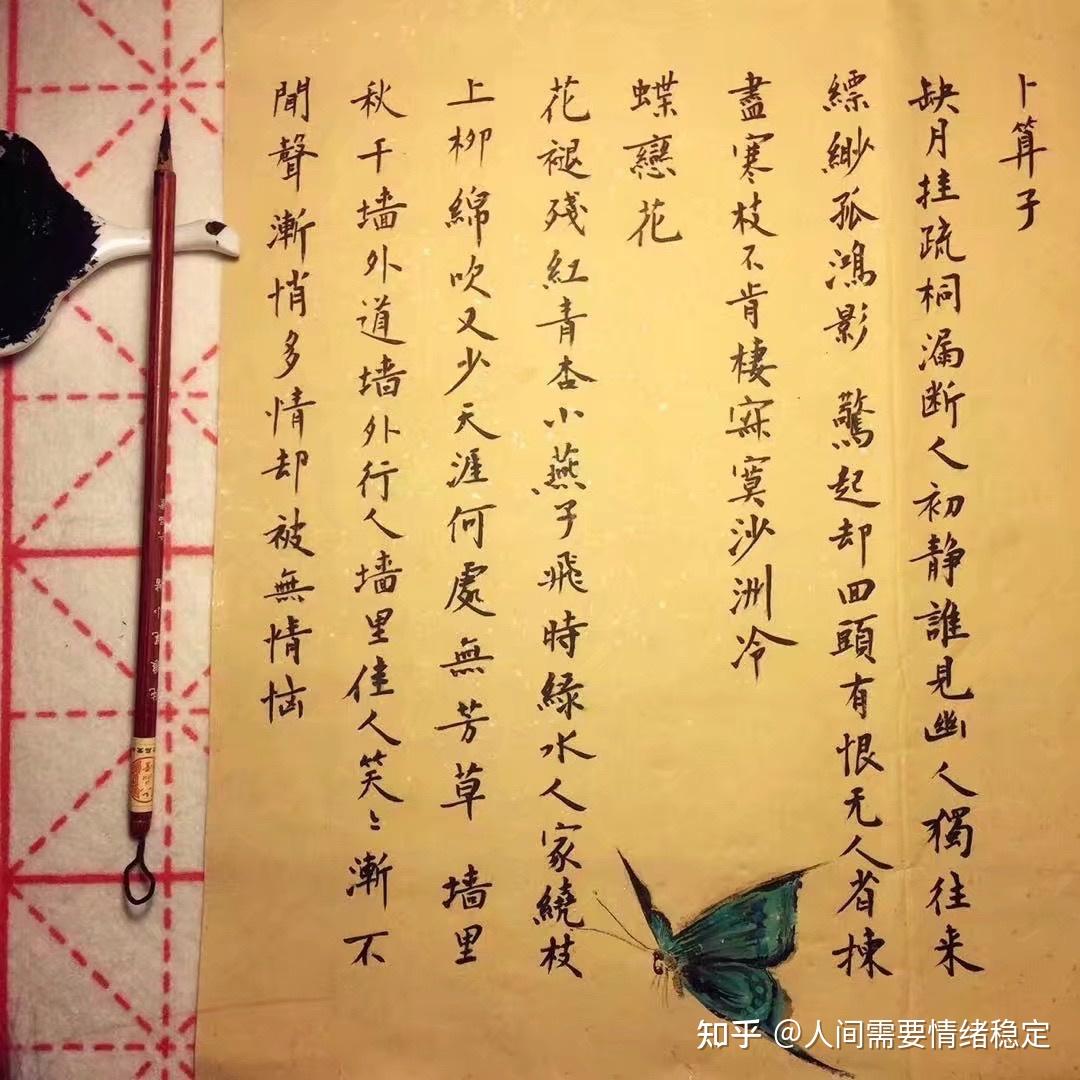 卜算子
缺月挂疏桐漏断人初静誰見幽人獨往来
縹緲孤鴻影 驚起却回頭有恨无人省揀
盡寒枝不肯棲寂寞沙洲冷
蝶戀花
花褪残紅青杏小燕子飛時緑水人家繞枝
上柳綿吹又少天涯何處無芳草 墙里
秋千墙外道墙外行人墙里佳人笑〻漸不
聞聲漸悄多情却被無情恼
知乎 @人间需要情绪稳定